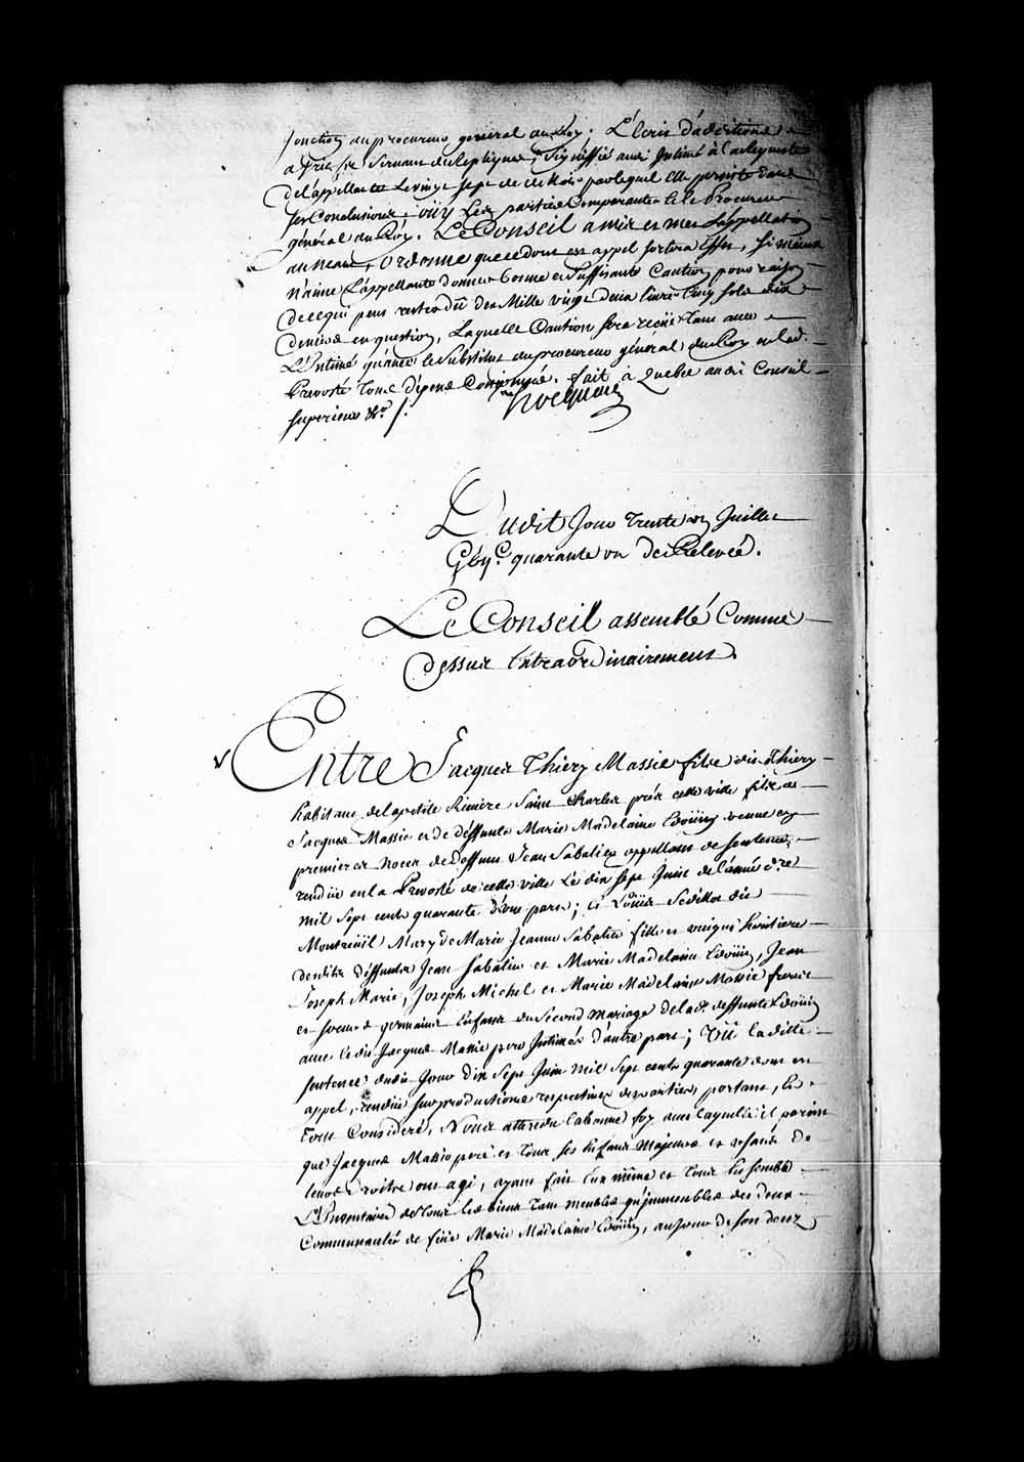 jonction du procureur general du Roy. L'Ecrit d'additions
de l'appellante Le vingt sept de ce Mois par lequel Elle persiste dans
ses Conclusions, oüy Les parties Comparantes et le Procureur
général du Roy. Le Conseil a mis et met L'appellation
au neant, ordonne que ce dont est appel sortira Effet, si mieux
n'aime L'appellante donner bonne et suffisante Caution pour raison
de ce qui peut rester dû des Mille vingt deux livres Cinq sols dix
deniers en question, Laquelle Caution sera reçüe tant avec
L'Intimé qu'avec le Substitut du procureur général du Roy en lad.
Prevosté Tous dépens Compensés. fait à Quebec au di Conseil
superieur &c. /.
hocquart
Dudit Jour trente un Juillet
quarante un de Relevée.
Le Conseil assemblé Comme
dessus Extraordinairement.
Entre Jacques Thiery Massie fils dit Thiery
habitant de la petite Riviere Saint Charles près cette ville fils de
Jacques Massie et de déffunte Marie Madelaine veuve en
premieres noces de Deffunt Jean Sabatier appellant de sentence
rendüe en la Prevosté de cette ville Le dix sept Juin de l'année d.re
mil sept cents quarante d'une part; et Loüis Sedillot dit
Montreüil Mary de Marie Jeanne Sabatier fille et unique heritiere
desdits déffunts Jean Sabatier et Marie Madelaine, Jean
Joseph Marie, Joseph Michel et Marie Madelaine Massie freres
et soeurs germains Enfans du Second Mariage de lad. deffunte
avec le dit Jacques Massie pere Intimés d'autre part; Vû ladite
sentence dudit Jour dix Sept Juin mil sept cents quarante dont est
appel, rendüe sur productions respectives des parties, portant,
Tout Consideré, Nous attendu la bonne foy avec laquelle il paroist
que Jacques Massie pere et Tous ses Enfans Majeurs et
ont agi, ayant fait Eux même et Tous Ensemble
L'Inventaire de Tous les biens Tant meubles qu'immeubles des deux
Communautés de feüe Marie Madelaine, au jour de son decez